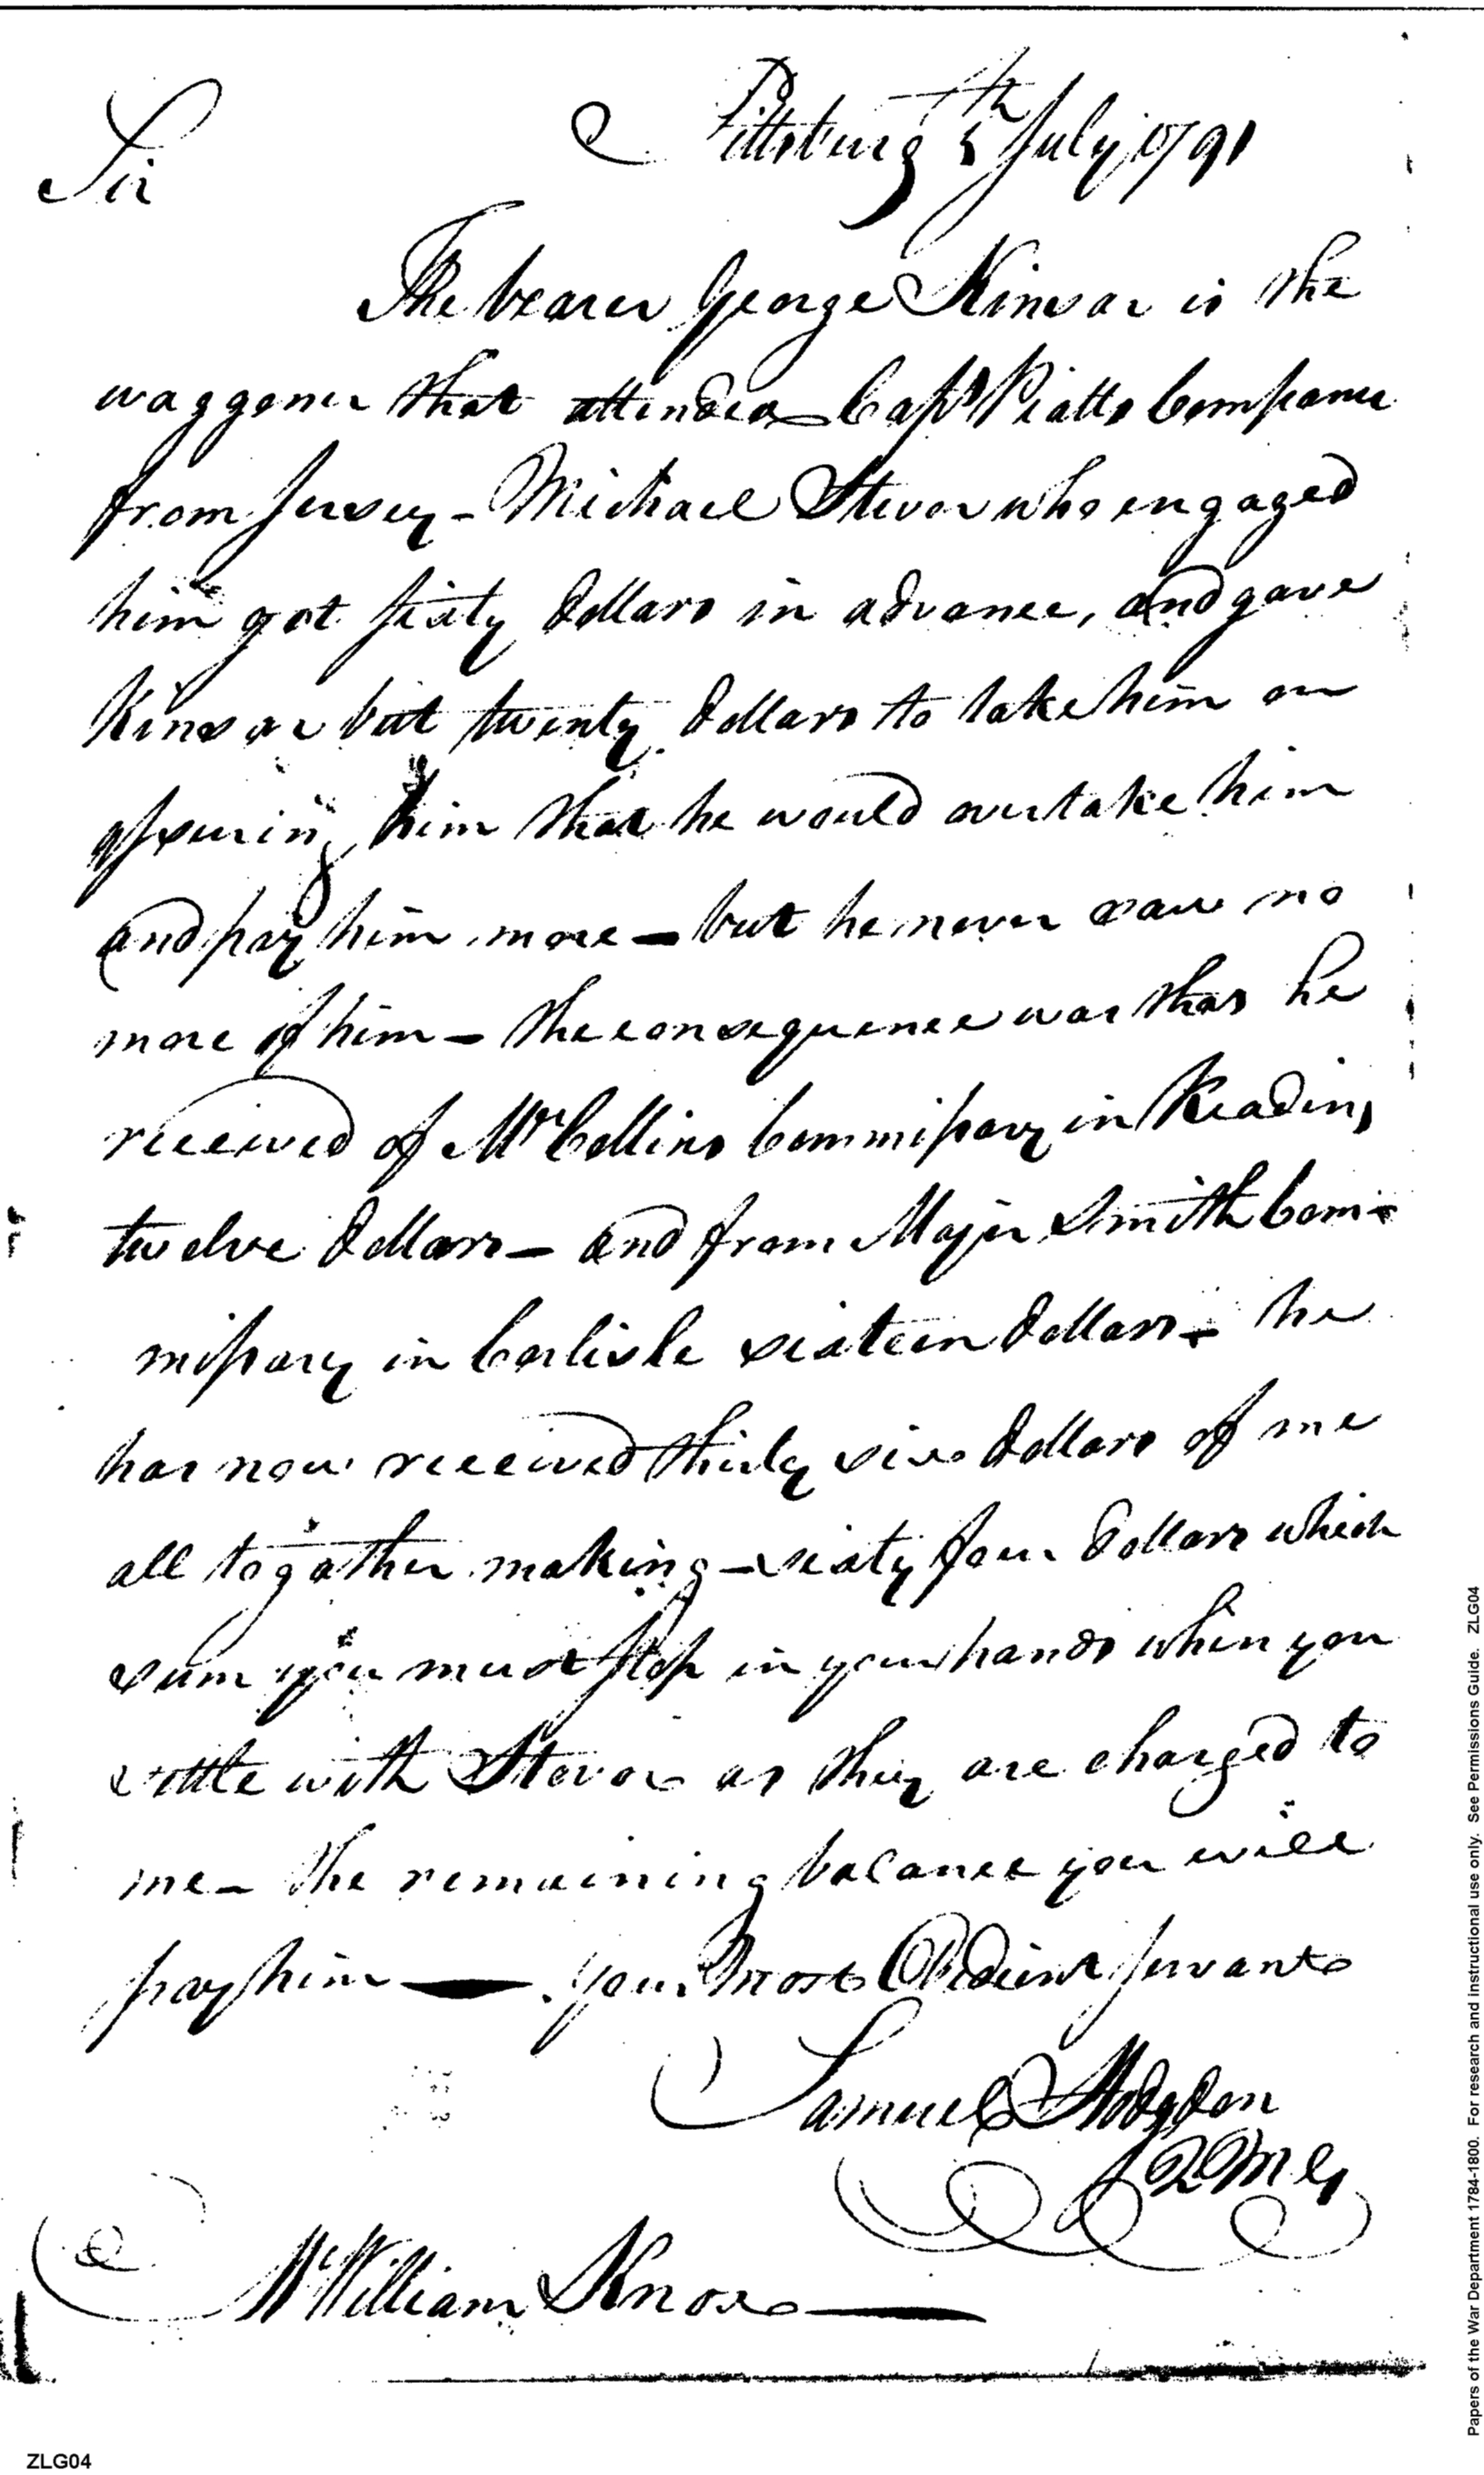 Pittsburg 5th July 1791
Sir
The bearer George Kinsar is the
waggoner that attended Capt Piatts Company
from Jersey - Michael Stever who engaged
him got sixty dollars in advance, and gave
Kinsar but twenty dollars to take him on
assuring him that he would overtake him
and pay him more - but he never saw no
more of him - the consequence was that he
received of Mr Collins Commissary in Reading
twelve dollars - and from Major Smith Com-
missary in Carlisle sixteen dollars - he
has now received thirty six dollars of me
all together making - sixty four dollars which
sum you must stop in your hands when you
settle with Stever as they are charged to
me - the remaining balance you will
pay him - Your most Obedient servant
Samuel Hodgdon
QMG
Mr William Knox
ZLG04
Papers of the War Department 1784-1800. For research and instructional use only. See Permissions Guide. ZLG04